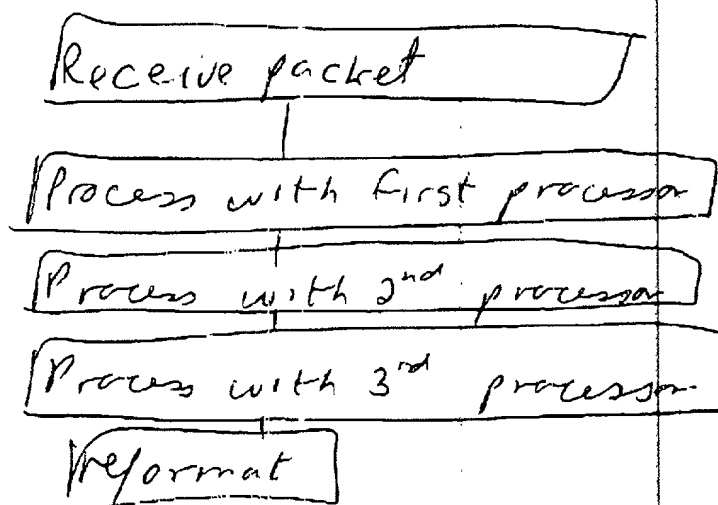 Receive packet
Process with first processor
Process with 2nd processor
Process with 3rd processor
reformat